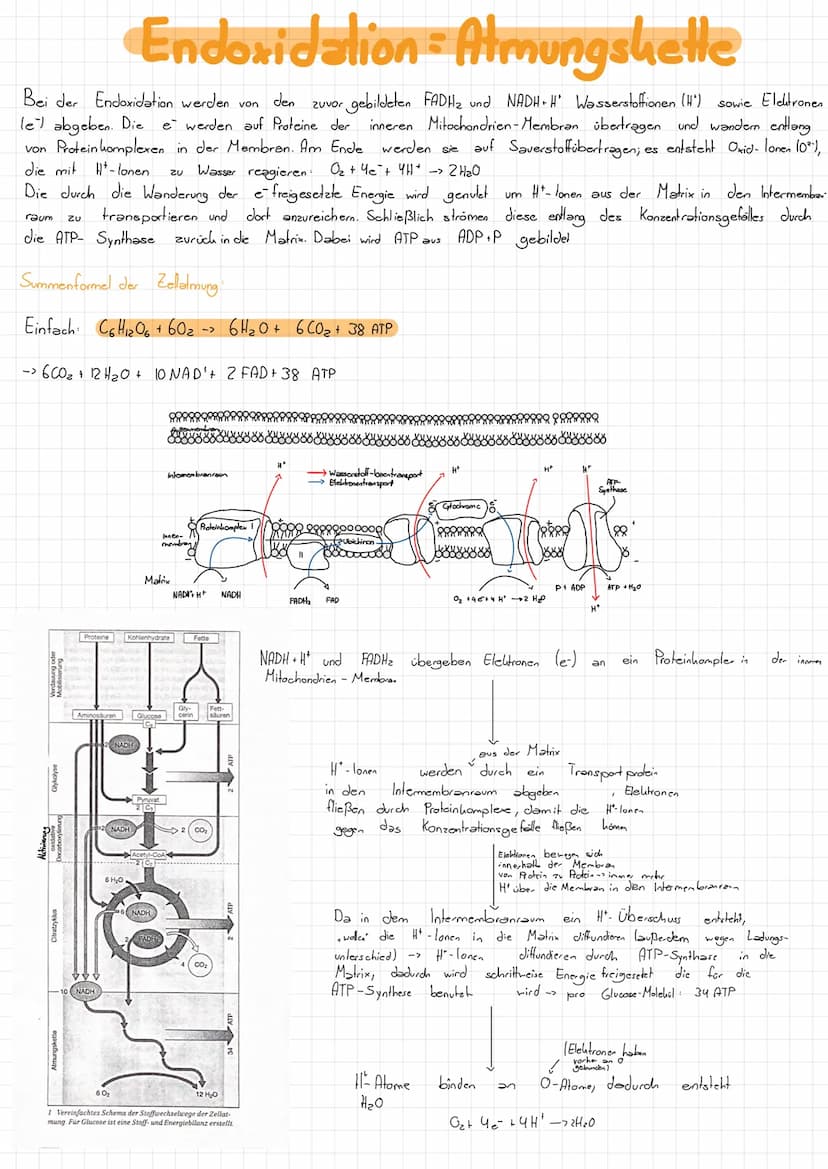 Endoxidation = Atmungskette
Bei der Endoxidation werden von den zuvor gebildeten FADH₂ und NADH+H⁺ Wasserstoffionen (H⁺) sowie Elektronen
(e⁻) abgeben. Die e⁻ werden auf Proteine der inneren Mitochondrien-Membran übertragen und wandern entlang
von Proteinkomplexen in der Membran. Am Ende werden sie auf Sauerstoff übertragen; es entsteht Oxid-Ionen (O²⁻),
die mit H⁺-Ionen zu Wasser reagieren: O₂ + 4e⁻ + 4H⁺ -> 2H₂O
Die durch die Wanderung der e⁻ freigesetzte Energie wird genutzt um H⁺-Ionen aus der Matrix in den Intermembran-
raum zu transportieren und dort anzureichern. Schließlich strömen diese entlang des Konzentrationsgefälles durch
die ATP-Synthase zurück in die Matrix. Dabei wird ATP aus ADP+P gebildet
Summenformel der Zellatmung:
Einfach: C₆H₁₂O₆ + 6O₂ -> 6H₂O + 6CO₂ + 38 ATP
-> 6CO₂ + 12H₂O + 10 NAD⁺ + 2 FAD + 38 ATP
Aussenmembran
Intermembranraum
H⁺
Wasserstoff-Ionentransport
Elektronentransport
H⁺
H⁺
H⁺
ATP-
Synthase
Cytochrom c
e⁻
e⁻
Proteinkomplex I
Inner-
membran
II
Ubichinon
Matrix
NADH+H⁺
NADH
FADH₂
FAD
O₂ + 4e⁻ + 4 H⁺ -> 2 H₂O
P + ADP
ATP + H₂O
H⁺
Proteine
Kohlenhydrate
Fette
Verdauung oder
Mobilisierung
Aminosäuren
Glucose
C₆
Gly-
cerin
Fett-
säuren
Glykolyse
2
NADH
2
ATP
Pyruvat
2 C₃
Aktivierung
oxidative
Decarboxylierung
2
NADH
2
CO₂
Acetyl-CoA
2 C₂
6 H₂O
Citratzyklus
6
NADH
2
FADH₂
2
ATP
4
CO₂
10
NADH
Atmungskette
34
ATP
6 O₂
12 H₂O
1 Vereinfachtes Schema der Stoffwechselwege der Zellat-
mung. Für Glucose ist eine Stoff- und Energiebilanz erstellt.
NADH+H⁺ und FADH₂ übergeben Elektronen (e⁻) an ein Proteinkomplex in der inneren
Mitochondrien-Membran
aus der Matrix
H⁺-Ionen werden durch ein Transportprotein
in den Intermembranraum abgeben, Elektronen
fließen durch Proteinkomplexe, damit die H⁺-Ionen
gegen das Konzentrationsgefälle fließen können
Elektronen bewegen sich
innerhalb der Membran
von Protein zu Protein -> immer mehr
H⁺ über die Membran in den Intermembranraum
Da in dem Intermembranraum ein H⁺-Überschuss entsteht,
"wollen" die H⁺-Ionen in die Matrix diffundieren (außerdem wegen Ladungs-
unterschied) -> H⁺-Ionen diffundieren durch ATP-Synthase in die
Matrix, dadurch wird schrittweise Energie freigesetzt die für die
ATP-Synthese benutzt wird -> pro Glucose-Molekül: 34 ATP
(Elektronen haben
vorher an O
gebunden)
H⁺-Atome binden an O-Atome, dadurch entsteht
H₂O
O₂ + 4e⁻ + 4H⁺ -> 2H₂O